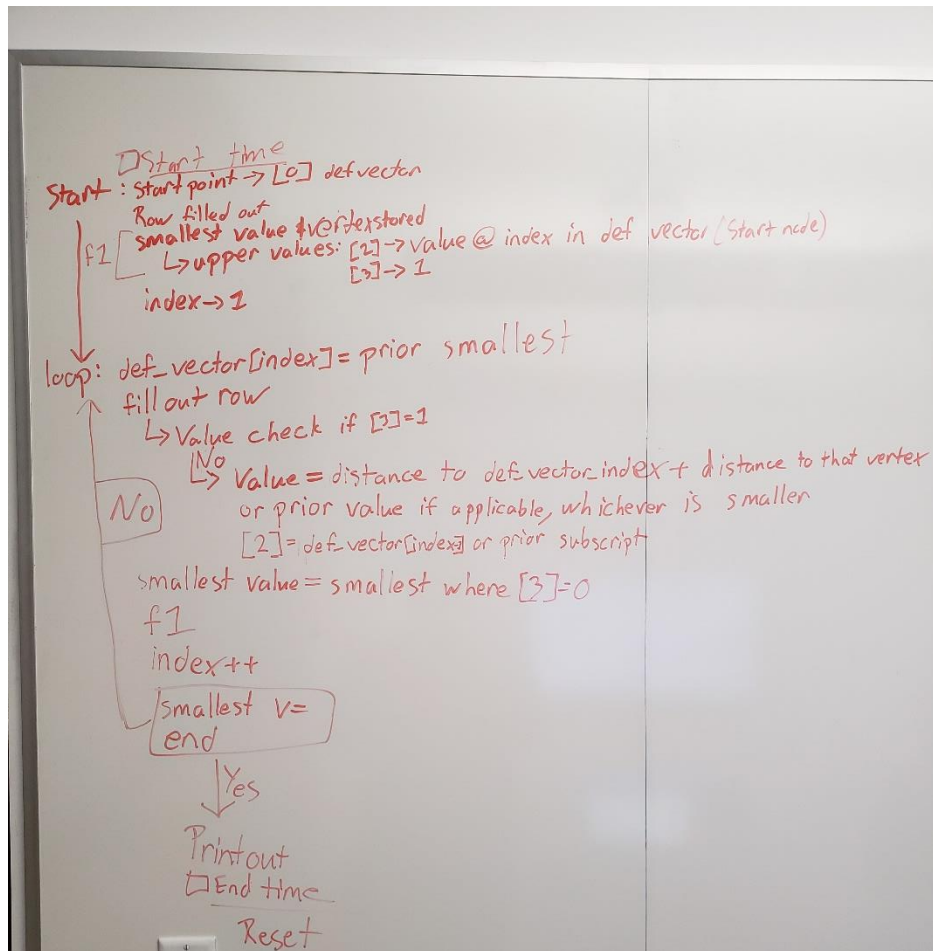 □Start time
Start: Start point → [0] def vector
Row filled out
f1 [ smallest value & vertex stored
↳ upper values: [2] → value @ index in def vector (Start node)
[3] → 1
index → 1
loop: def_vector[index] = prior smallest
fill out row
↳ Value check if [3]=1
No
↳ Value = distance to def_vector_index + distance to that vertex
or prior value if applicable, whichever is smaller
No
[2] = def_vector[index] or prior subscript
smallest value = smallest where [3]=0
f1
index++
smallest v=
end
Yes
Printout
□ End time
Reset